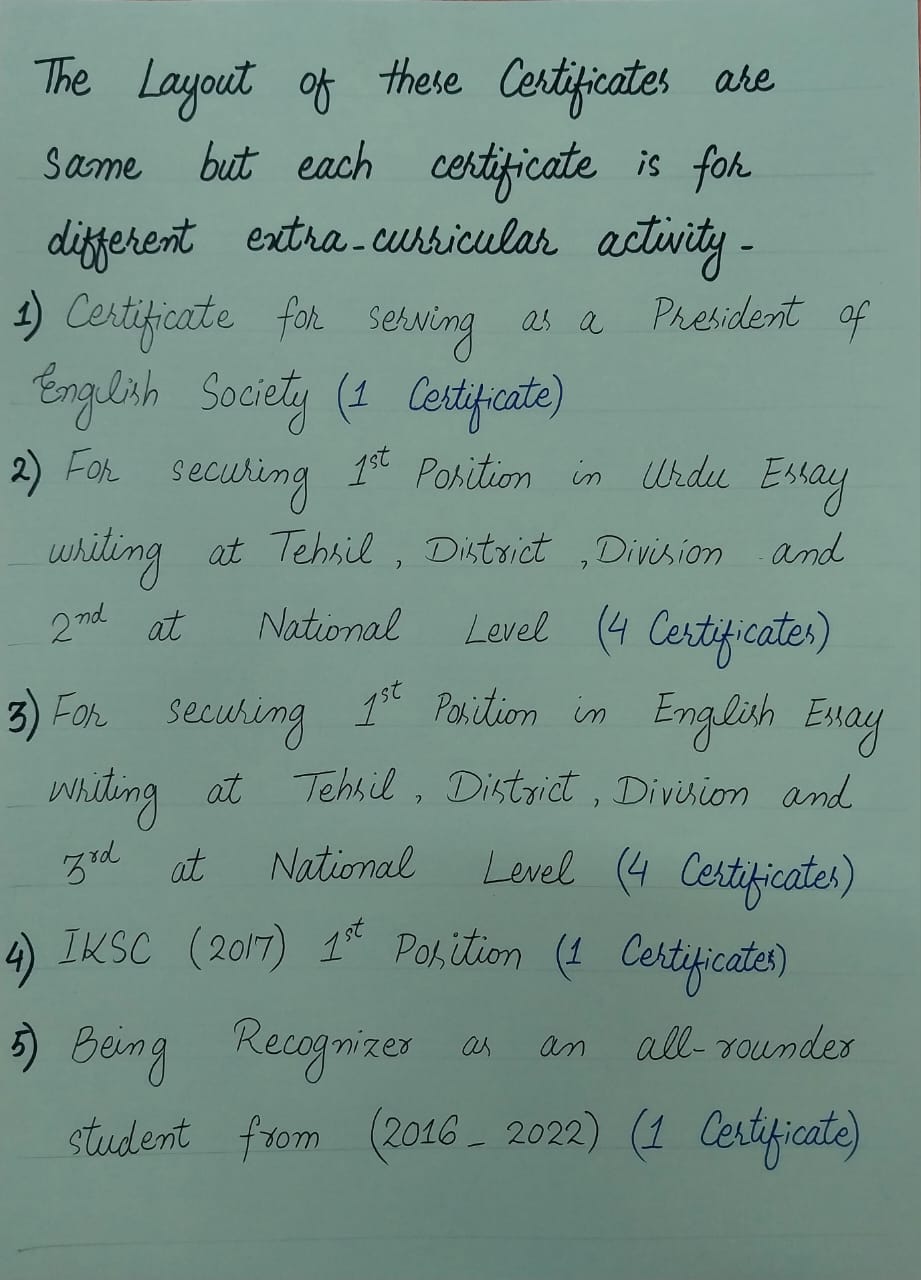 The Layout of these Certificates are
same but each certificate is for
different extra-curricular activity-
1) Certificate for serving as a President of
English Society (1 Certificate)
2) For securing 1st Position in Urdu Essay
writing at Tehsil, District, Division and
2nd at National Level (4 Certificates)
3) For securing 1st Position in English Essay
writing at Tehsil, District, Division and
3rd at National Level (4 Certificates)
4) IKSC (2017) 1st Position (1 Certificates)
5) Being Recognizer as an all-rounder
student from (2016 - 2022) (1 Certificate)